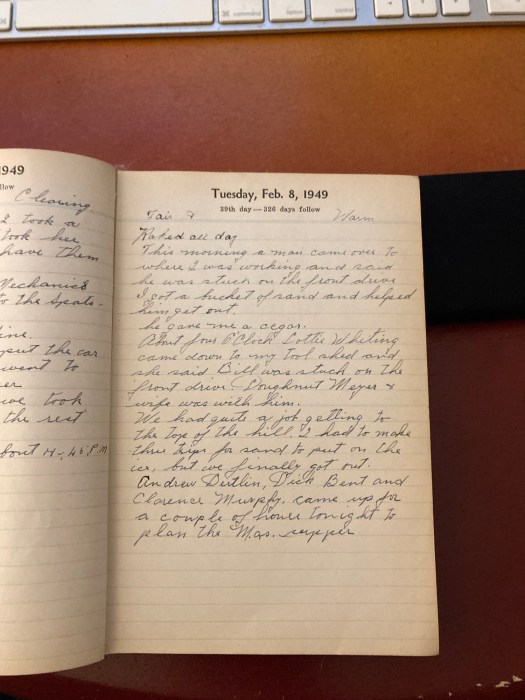 command
option
control
1949
llow
Clearing
I took a
took her
have them
Mechanics
to the Seats-
ine.
put the car
went to
er
we took
the rest
bout 4-45 P.M
Tuesday, Feb. 8, 1949
39th day — 326 days follow
Fair & Warm
Raked all day
This morning a man came over to
where I was working and said
he was stuck on the front drive
I got a bucket of sand and helped
him get out.
he gave me a cegar.
About four O'Clock Lottie Whiting
came down to my tool shed and
she said Bill was stuck on the
front drive. Doughnut Meyer &
wife was with him.
We had quite a job getting to
the top of the hill. I had to make
three trips for sand to put on the
ice, but we finally got out.
Andrew Dutlin, Dick Bent and
Clarence Murphy. came up for
a couple of hours tonight to
plan the Mas. supper